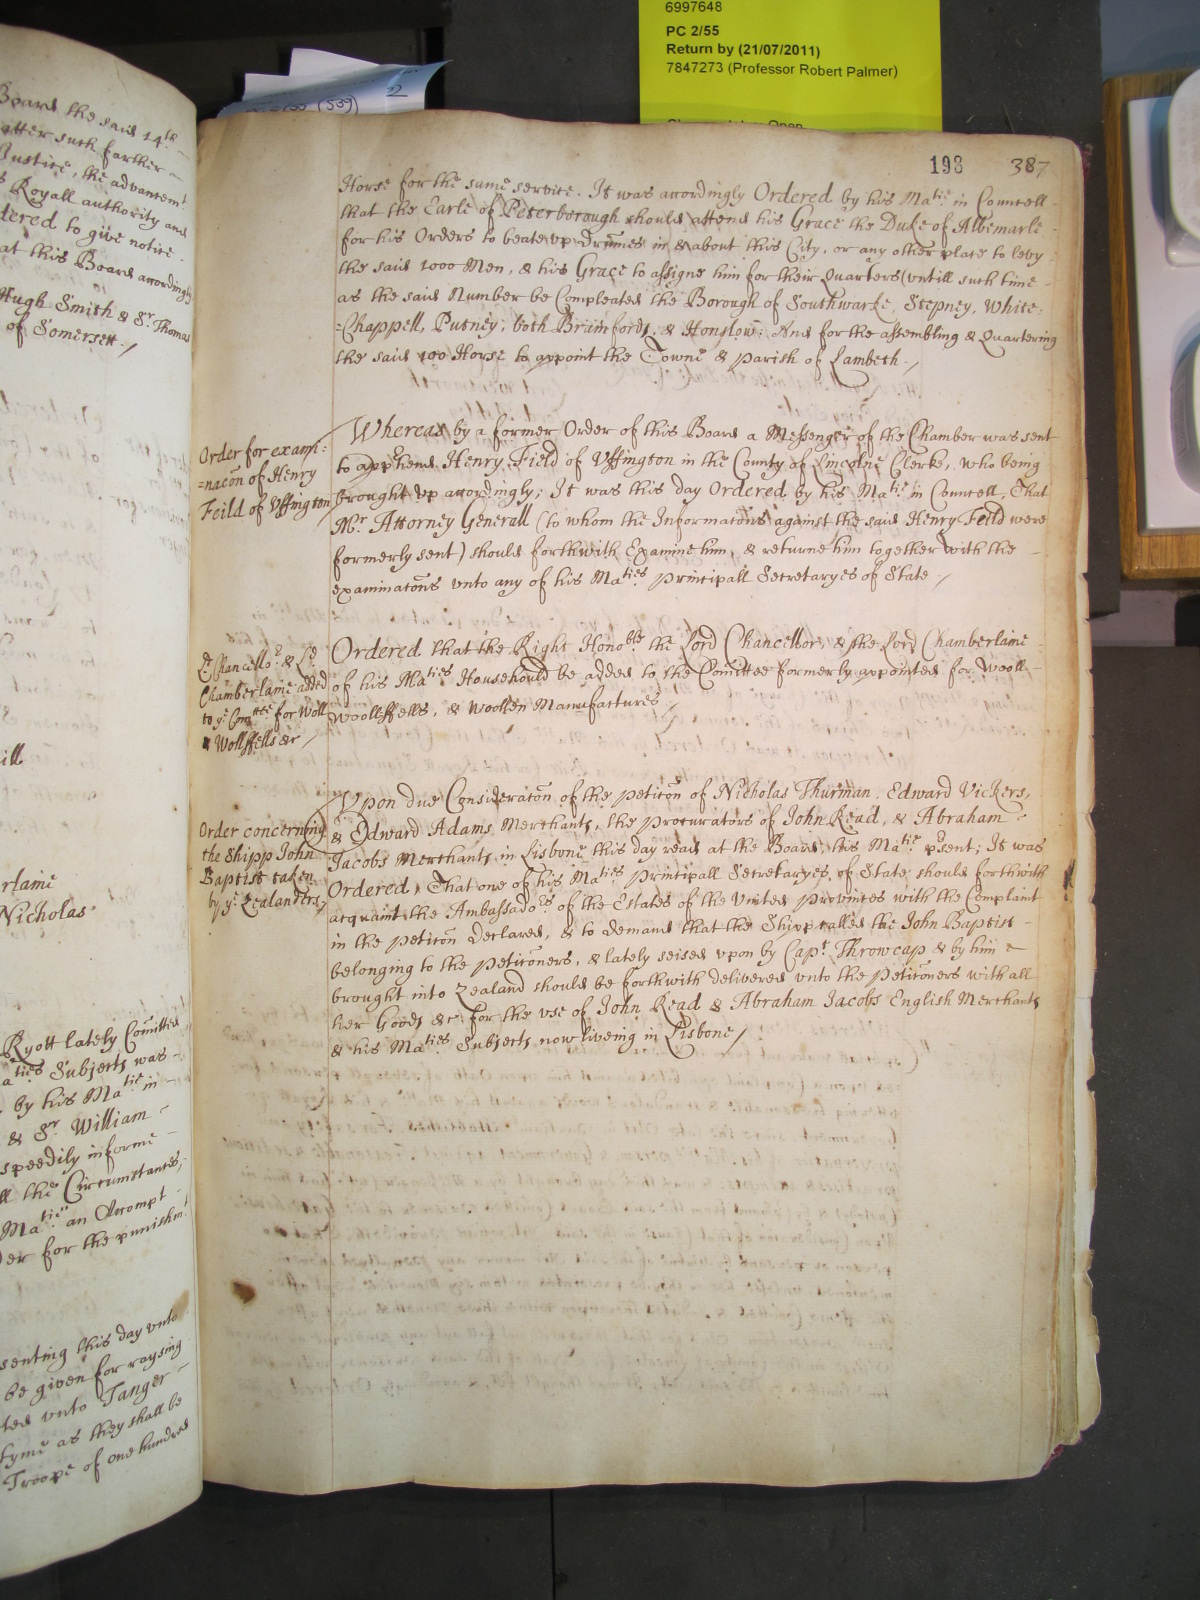 6997648
PC 2/55
Return by (21/07/2011)
7847273 (Professor Robert Palmer)
Board the said 14th
after such further
Justice, the advancemt
Royall authority and
dered to give notice
at this Board accordingly
Hugh Smith & Sr. Thomas
of Somersett
ill
rlaine
Nicholas
Ryott lately Comitted
aties Subjects was
by his Matie in
& Sr. William
speedily informe
ll the Circumstances,
Matie an Accompt
der for the punishmt
senting this day unto
be given for raysing
ted unto Tanger
tyme as they shall be
Troope of one hundred
198 387
Horse for the same service. It was accordingly Ordered by his Matie in Councell
that the Earle of Peterborough should attend his Grace the Duke of Albemarle
for his Orders to beate vp Drumes in & about this City, or any other place to levy
the said 1000 Men, & his Grace to assigne him for their Quarters (untill such time
as the said Number be Compleated the Borough of Southwarke, Stepney, White:
=Chappell, Putney, both Brainfords, & Honslow: And for the assembling & Quartering
the said 100 Horse to appoint the Towne & parish of Lambeth
Order for exami:
=nacon of Henry
Feild of Vffington
Whereas by a former Order of this Board a Messenger of the Chamber was sent
to apprhend Henry Field of Vffington in the County of Lincolne Clerke, who being
brought vp accordingly; It was this day Ordered by his Matie in Councell, That
Mr. Attorney Generall (to whom the Informatons against the said Henry Feild were
formerly sent) should forthwith Examine him, & returne him together with the
examinatons vnto any of his Maties principall Secretaryes of State
Ld Chancellor & Ld
Chamberlaine added
to ye Comttee for Woll
Wollffells &c
Ordered that the Right Honoble the Lord Chancellor, & the Lord Chamberlaine
of his Maties Household be added to the Comittee formerly appointed for Wooll
Woollffells, & Woollen Manufactures
Order concerning
the Shipp John
Baptist taken
by ye Zealanders
Vpon due Consideraton of the peticon of Nicholas Thurman, Edward Vickers,
& Edward Adams Merchants, the procurators of John Read, & Abraham
Jacobs Merchants in Lisbone this day read at the Board, his Matie prsent; It was
Ordered, That one of his Maties principall Secretaryes of State should forthwith
acquaint the Ambassadors of the Estates of the Vnited provinces with the Complaint
in the peticon Declared, & to demand that the Shipp called the John Baptist
belonging to the peticoners, & lately seised vpon by Capt Throwcap & by him
brought into Zealand should be forthwith delivered vnto the peticoners with all
her Goods &c for the vse of John Read & Abraham Jacobs English Merchants
& his Maties Subjects now liveing in Lisbone